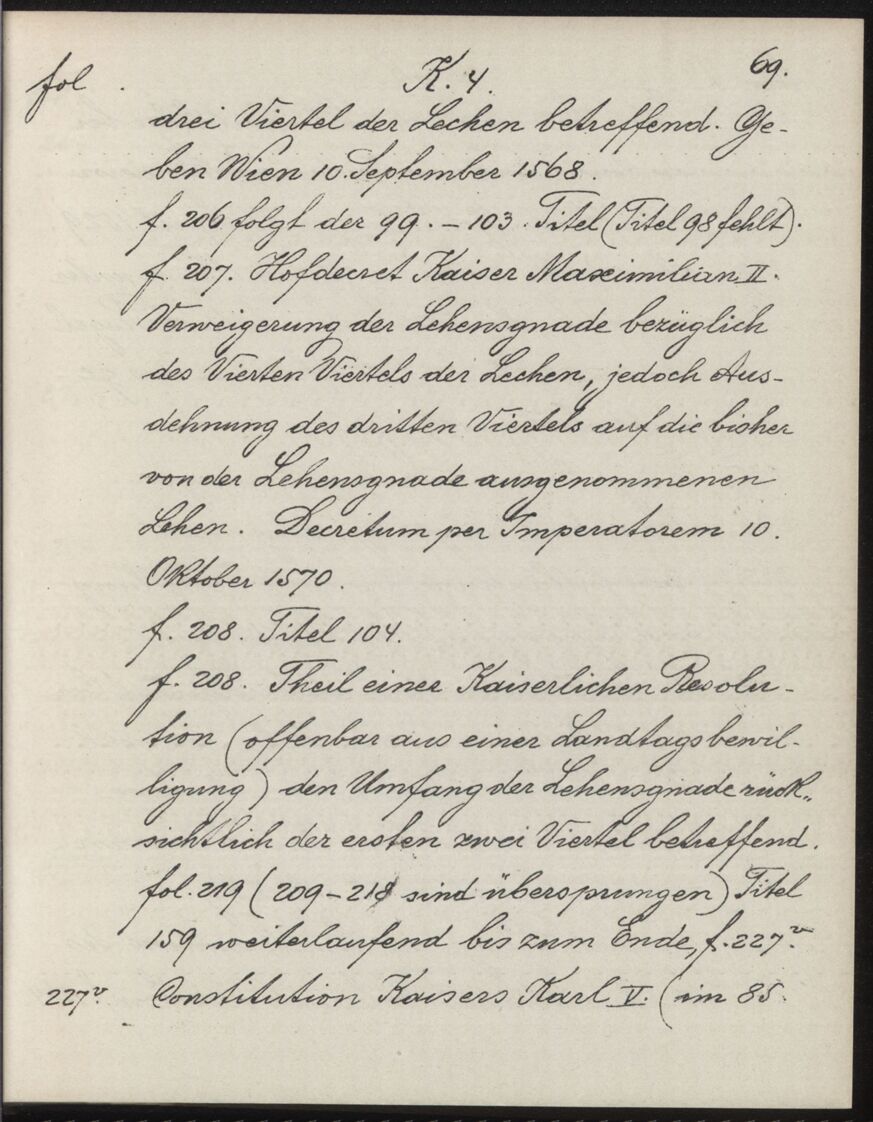 fol . K. 4. 69.
drei Viertel der Lechen betreffend. Ge-
ben Wien 10. September 1568.
f. 206 folgt der 99. - 103. Titel (Titel 98 fehlt).
f. 207. Hofdecret Kaiser Maximilian II.
Verweigerung der Lehensgnade bezüglich
des Vierten Viertels der Lechen, jedoch Aus-
dehnung des dritten Viertels auf die bisher
von der Lehensgnade ausgenommenen
Lehen. Decretum per Imperatorem 10.
Oktober 1570.
f. 208. Titel 104.
f. 208. Theil einer Kaiserlichen Resolu-
tion (offenbar aus einer Landtagsbewil-
ligung) den Umfang der Lehensgnade rück„
sichtlich der ersten zwei Viertel betreffend.
fol. 219 (209-218 sind übersprungen) Titel
159 weiterlaufend bis zum Ende, f. 227v.
227v. Constitution Kaisers Karl V. (im 85.